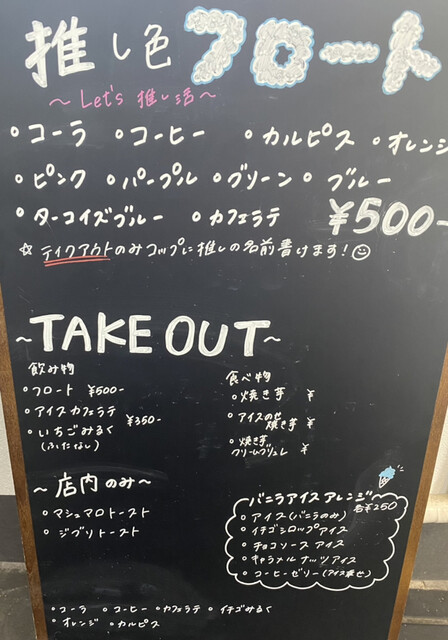 推し色フロート
～Let's 推し活～
◦コーラ ◦コーヒー ◦カルピス ◦オレンジ
◦ピンク ◦パープル ◦グリーン ◦ブルー
◦ターコイズブルー ◦カフェラテ ¥500-
☆テイクアウトのみコップに推しの名前書けます！☺
～TAKE OUT～
飲み物
◦フロート ¥500-
◦アイスカフェラテ
◦いちごみるく ¥350-
(ふたなし)
食べ物
◦焼き芋 ¥
◦アイスのせ
焼き芋 ¥
◦焼き芋
クリームブリュレ ¥
～店内のみ～
◦マシュマロトースト
◦ジブリトースト
バニラアイスアレンジ
各¥250
◦アイス(バニラのみ)
◦イチゴシロップアイス
◦チョコソースアイス
◦キャラメルナッツアイス
◦コーヒーゼリー(アイス乗せ)
◦コーラ ◦コーヒー ◦カフェラテ ◦イチゴみるく
◦オレンジ ◦カルピス